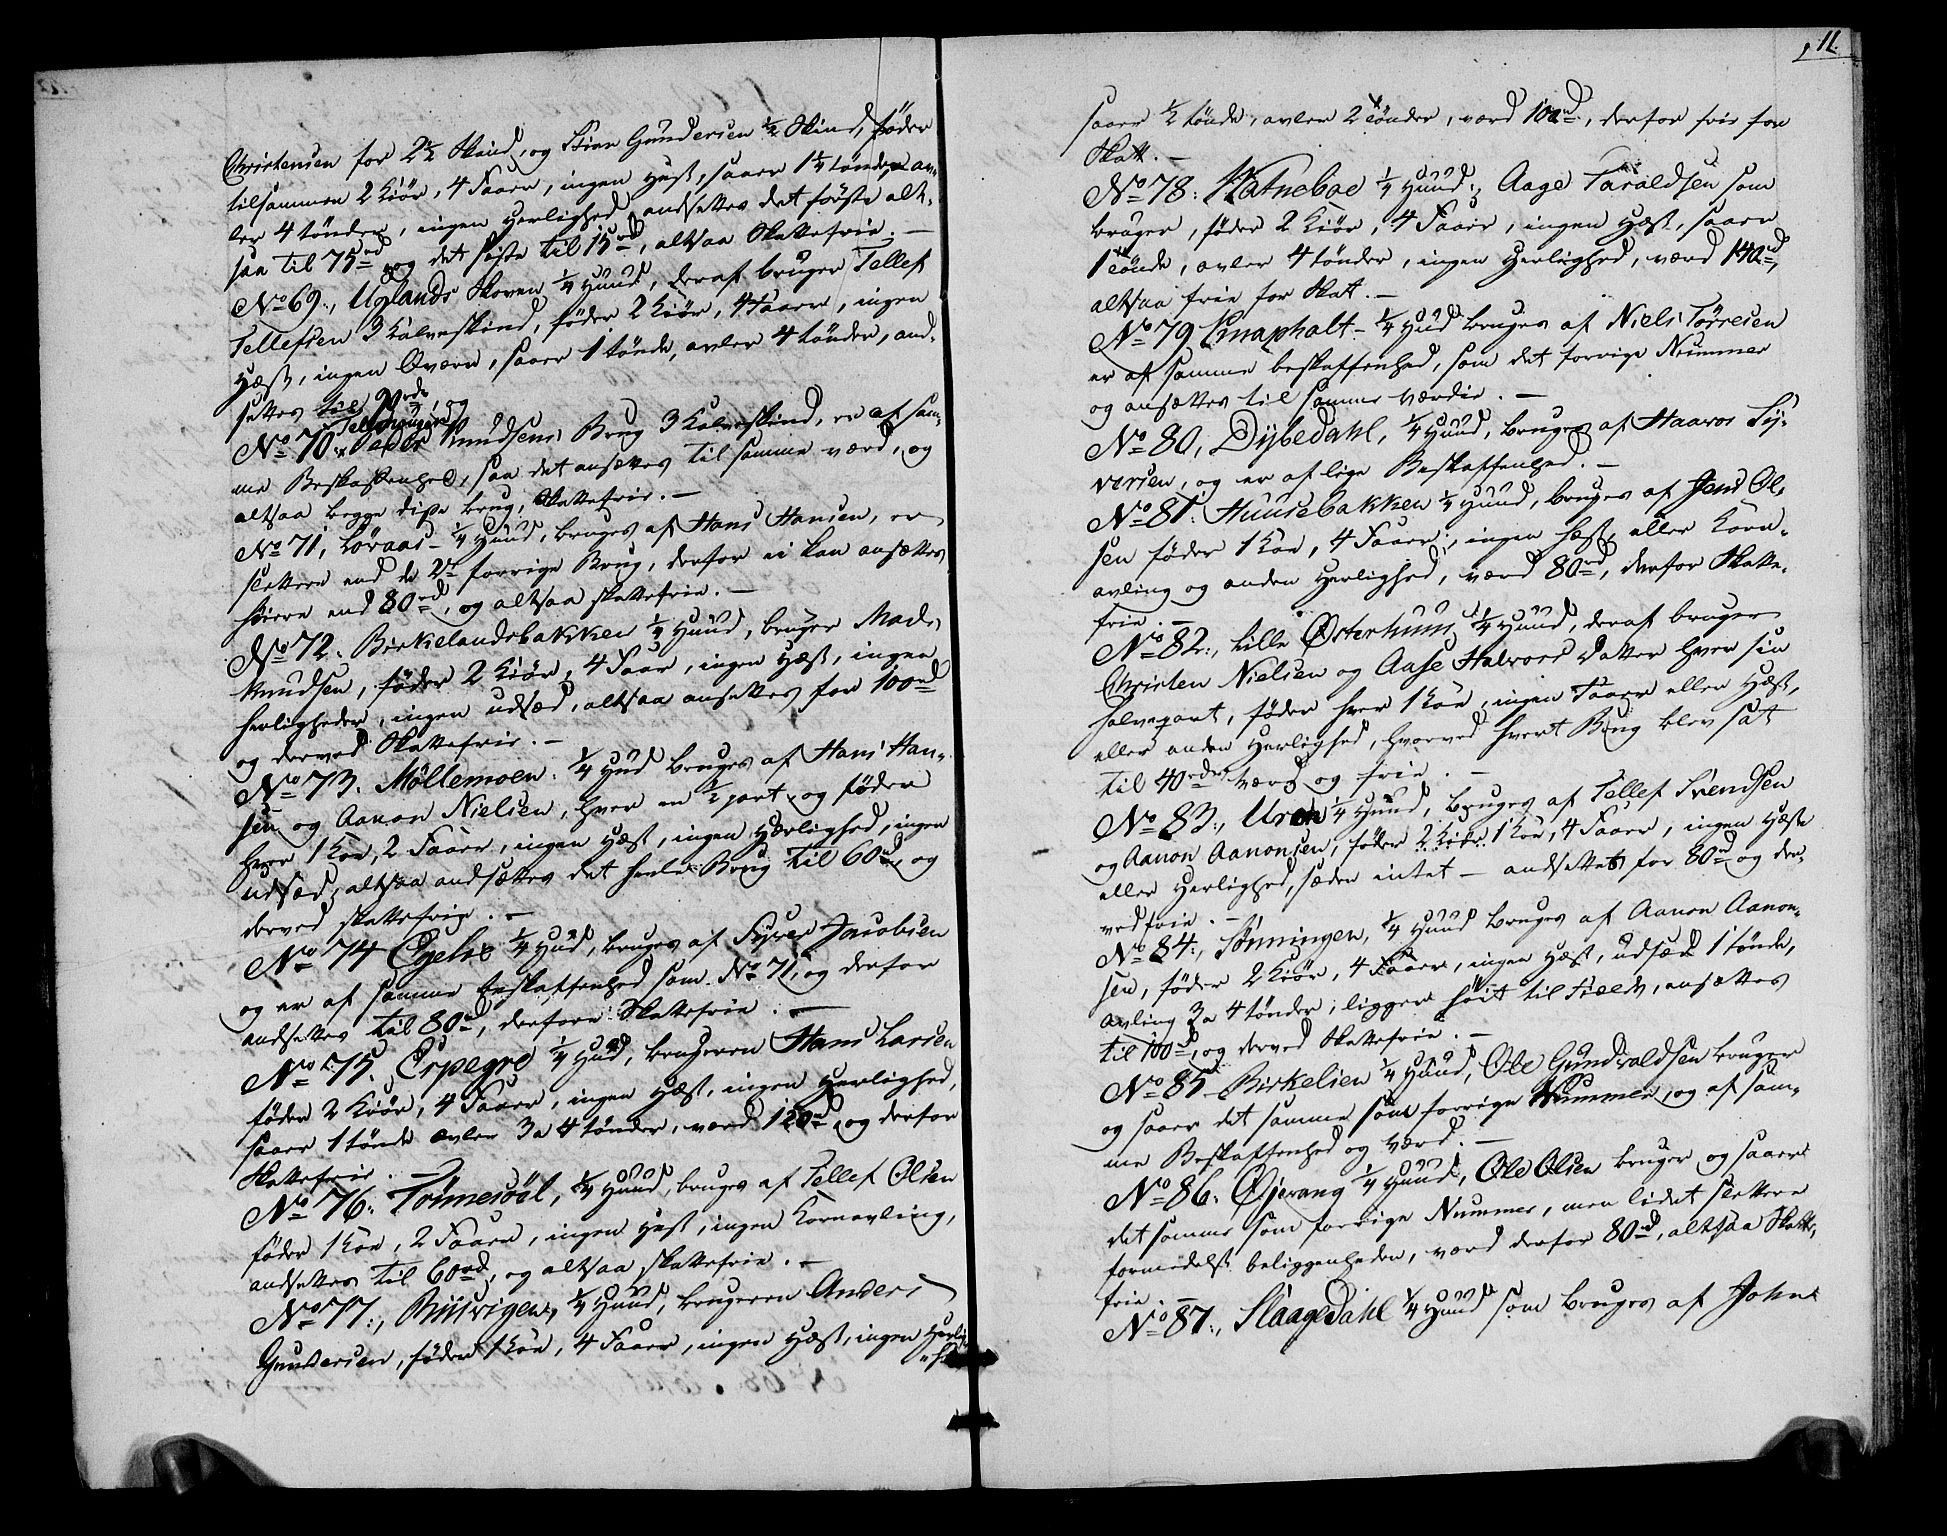 Christensen for 2½ Skind, og Stian Gundersen ½ Skind, føder
tilsammen 2 Kiör, 4 Faarr, ingen Hest, saaer 1¼ tönde, av-
ler 4 tönder, ingen Herlighed, andsettes det første alt-
saa til 75rd og det sidste til 15rd, altsaa Skattefrie. —
No 69., Uglands Skoven ¼ Huud, deraf bruger Tellef
Tellefsen 3 Kalveskind, föder 2 Kiör, 4 Faarr, ingen
Hæst, ingen Qværn, saaer 1 tönde, avler 4 tönder, and-
settes til
No 70. Peder Knudsens Brug 3 Kalveskind, er af sam-
me Beskaffenhed, saa det ansættes til samme værd, og
altsaa begge disse brug, Skattefrie. —
No 71, Löraas — ¼ Huud, bruges af Hans Hansen, er
slettere end de 2de forrige Brug, derfor ei kan ansættes
höiere end 80rd, og altsaa skattefrie. —
No 72. Birkelandsbakken ¼ Huud, bruger Mads
Knudsen, föder 2 Kiör, 4 Faar, ingen Hæst, ingen
herligheder, ingen udsæd, altsaa ansettes for 100rd
og derved Skattefrie. —
No 73. Möllemoen. ¼ Hud bruges af Hans Han-
sen og Aanon Nielsen, hver en ½ part, og föder
hver 1 Koe, 2 Faarr, ingen Hæst, ingen Herlighed, ingen
udsæd, altsaa andsættes det heele Brug til 60rd, og
derved skattefrie. —
No 74 ¼ Hud, bruges af Jacobsen
og er af samme beskaffenhed som No 71, og derfor
andsettes til 80rd, derfore Skattefrie. —
No 75. Erpegre ¼ Hud, brugeren Hans Larsen
föder 2 Kiör, 4 Faarr, ingen Hæst, ingen Herlighed,
saaer 1 tönde avler 3 a 4 tönder, værd 120rd, og derfor
Skattefrie. —
No 76. Tönnesöl, ¼ Huud, bruges af Tellef Olsen
föder 1 Koe, 2 Faarr, ingen Hest, ingen Kornavling,
andsettes til 60rd, og altsaa skattefrie. —
No 77., ¼ Huud, brugeren Anders
Gundersen, föder 1 Koe, 4 Faarr, ingen Hæst, ingen Herlig-
11.
saaer ½ tönde, avler 2 tönder, værd 100rd, derfor frie for
Skatt. —
No 78. Katneboe ¼ Huud., Aage Taraldsen som
bruger, föder 2 Kiör, 4 Faarr, ingen Hæst, saaer
1 tönde, avler 4 tönder, ingen Herlighed, værd 140rd,
altsaa frie for Skat. —
No 79 Knapholt — ¼ Hud bruges af Niels Törresen
er af samme beskaffenhed, som det forrige Nummer
og ansættes til samme værdie. —
No 80, Dybedahl, ¼ Huud, bruges af Haavor Sy-
versen, og er af lige Beskaffenhed. —
No 81. Huusebakken ¼ Huud, bruges af Jens Ol-
sen föder 1 Koe, 4 Faarr, ingen Hæst, eller Korn-
avling og anden Herlighed, værd 80rd, derfor Skatte-
frie. —
No 82., Lille Østerhuus ¼ Huud, deraf bruger
Christen Nielsen og Aase Halvors Datter hver sin
halvpart, föder hver 1 Koe, ingen Faarr eller Hæst,
eller anden Herlighed, hvorved hvert Brug blev sat
til 40rdrs værd, og frie. —
No 83., Uren ¼ Huud, bruges af Tellef Svendsen
og Aanon Aanonsen, föder 2 Kiör 1 Koe, 4 Faarr, ingen Hæst
eller Herlighed, sæden intet — andsettes for 80rd og der-
ved frie. —
No 84., Tönningen, ¼ Huud bruges af Aanon Aanon-
sen, föder 2 Kiör, 4 Faarr, ingen Hæst, udsæd 1 tönde,
avling 3 a 4 tönder, ligger höit til Fields, ansættes
til 100rd, og derved Skattefrie. —
No 85 Birkelien ¼ Huud, Ole Gundvaldsen bruger
og saaer det samme som forrige Nummer, og af sam-
me Beskaffenhed og værd. —
No 86. Öjevang ¼ Huud, Ole Olsen bruger og saaer
det samme som forrige Nummer, men lidet slettere
formedelst beliggenheden, værd derfor 80rd, altsaa Skatt-
frie. —
No 87., Slaagedahl ¼ Huud som bruges af John